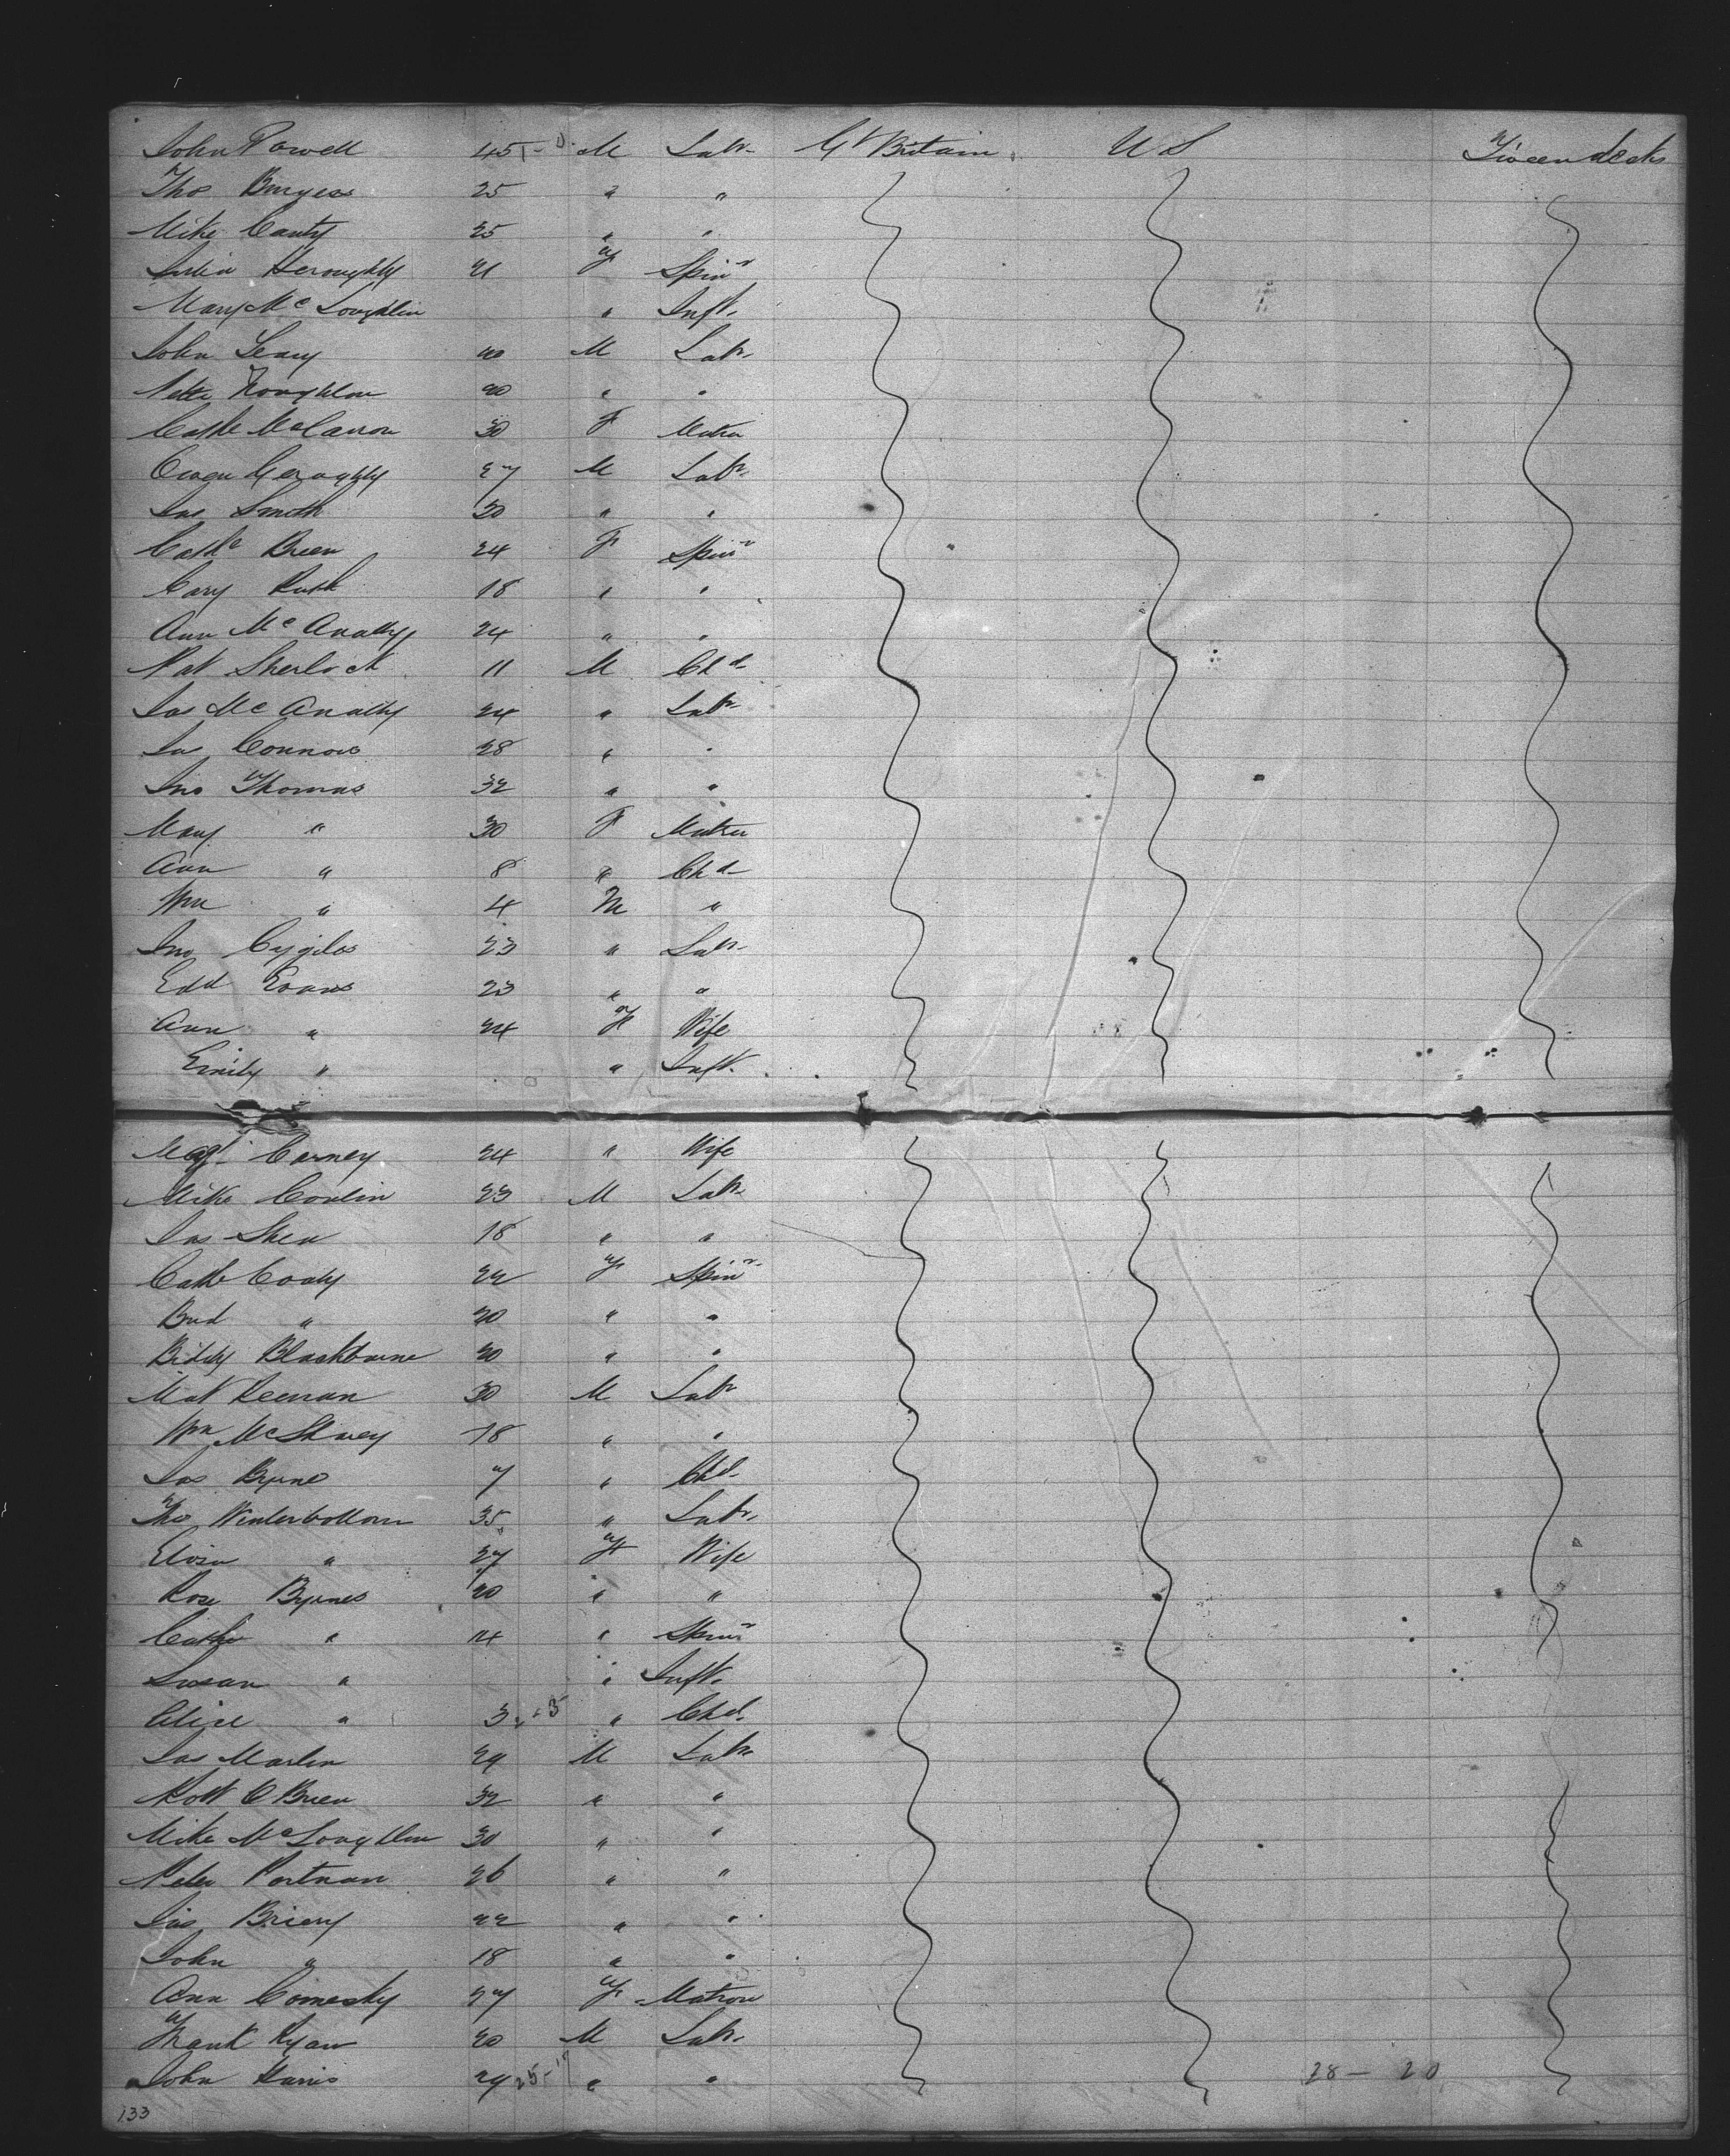 John Powell 45 M Labr Gt Britain U S Tween decks
Thos Burgess 25 " "
Mike Canty 25 " "
Geroughty 21 F Spinr
Mary Mc Loughlin " Inft.
John Leary 40 M Labr
Houghton 20 " "
Cathe McCarron 30 F Matrn
Owen Geroughty 27 M Labr
Jas Smith 30 " "
Cathe Breen 24 F Spinr
18 " "
Ann Mc Anally 24 " "
Pat Sherlock 11 M Chd
Jas Mc Anally 24 " Labr
Jas Connors 28 " "
Jno Thomas 32 " "
Mary " 30 F Matrn
Ann " 8 " Chd
Wm " 4 M "
Jno 23 " Labr
Edd Evans 23 " "
Ann " 24 F Wife
Emily " " Inft.
Magt Carney 24 " Wife
Mike Conlin 23 M Labr
Jas Shea 18 " "
Cathe Coody 22 F Spinr
Brid " 20 " "
Biddy Blackburne 20 " "
Mat Keenan 30 M Labr
Wm 18 " "
Jas Byrne 7 " Chd
Tho Winterbottom 35 " Labr
Eliza " 27 F Wife
Rose Byrnes 20 " "
Cathe " 14 " Spinr
Susan " " Inft.
Alice " 3 " Chd.
Jas Martin 29 M Labr
Robt O Brien 32 " "
Mike McLoughlin 30 " "
Peter Portman 26 " "
Jas Briery 22 " "
John " 18 " "
Ann Comesky 27 F Matron
Frank Ryan 20 M Labr
John Harris 29 " " 28 - 20
133